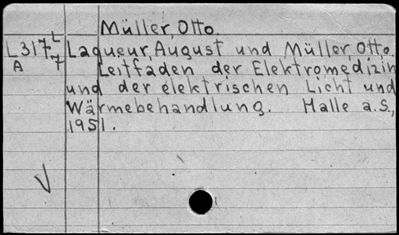 Müller, Otto.
L317 L7 Laqueur, August und Müller, Otto.
A Leitfaden der Elektromedizin
und der elektrischen Licht und
Wärmebehandlung. Halle a.S.,
1951.